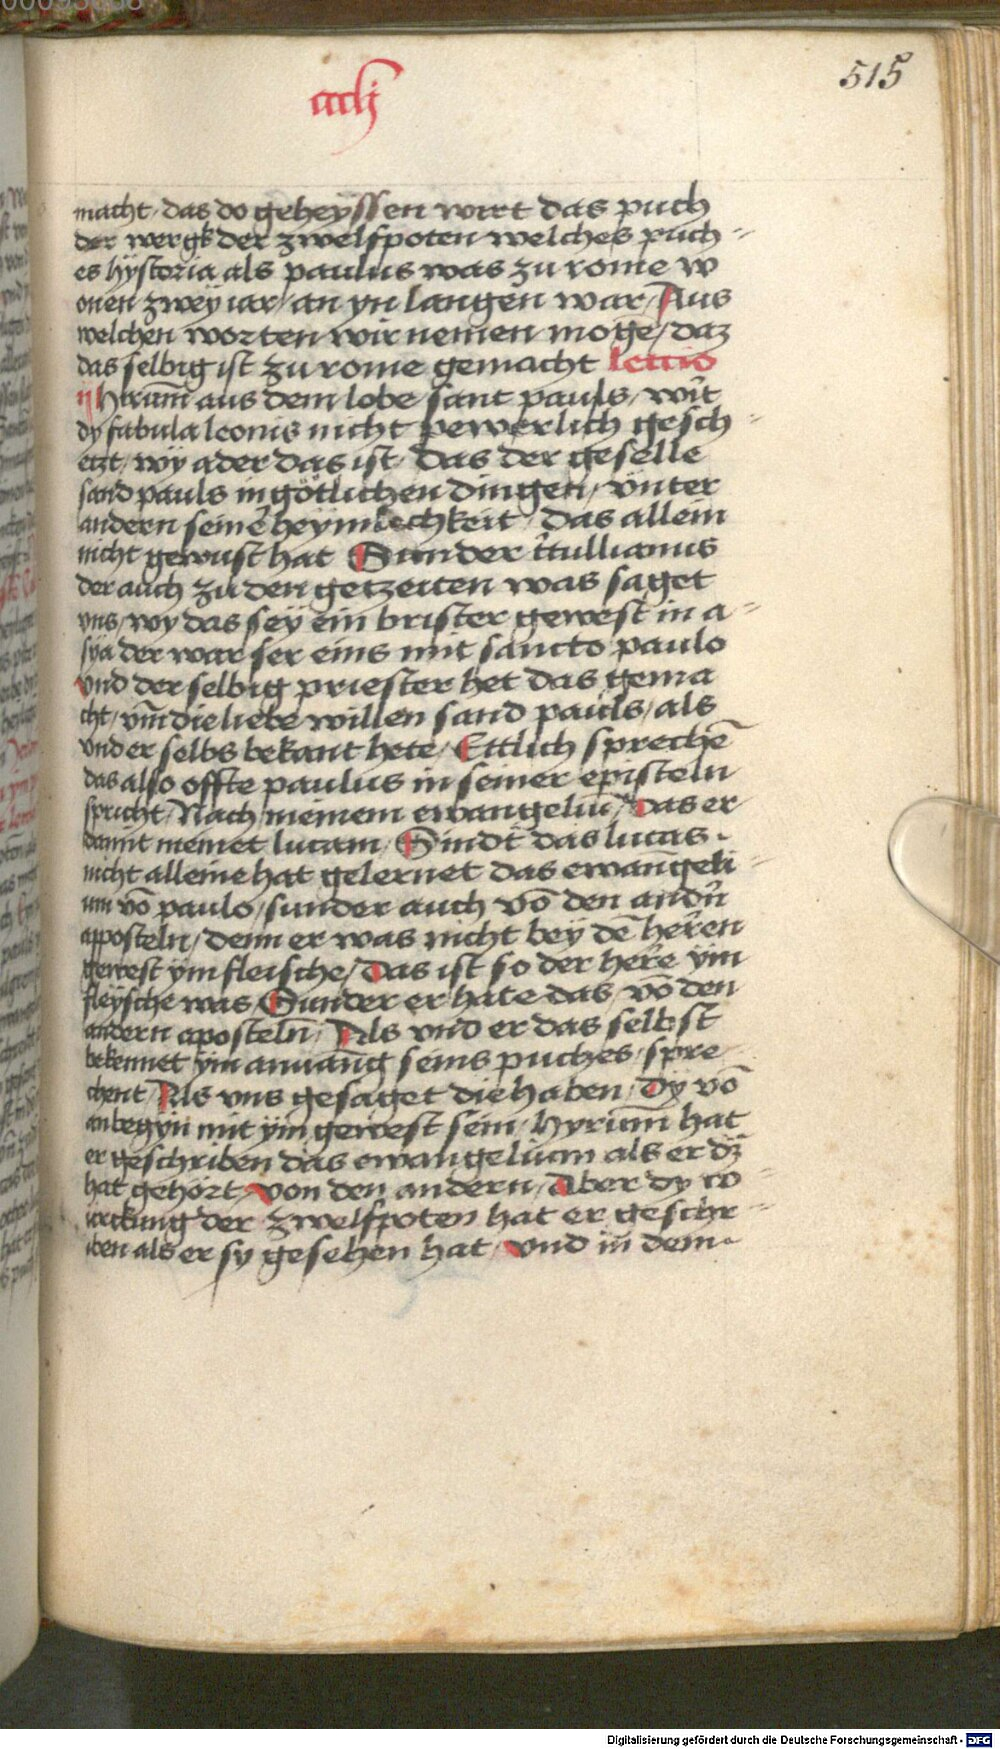 515
macht / das do geheyssen wirt das puch
der wergk der zwelfpoten welches puch-
es hÿstoria als paulus was zu rome w
onen zweÿ iar / an yn langen war / Aus
welchen worten wir nemen moge / daz
das selbig ist zu rome gemacht lectio
ij Hirum̄ aus dem lobe sant pauls / wirt
dy fabula leonis nicht pewerlich gesch-
etzt / wÿ ader das ist / das der geselle
sand pauls in götlichen dingen / vnter
andern seinē heÿmlechkeit / das allein
nicht gewust hat Sunder t̄tullianus
der auch zu den getzeiten was saget
vns / wy das seÿ ein brister gewest in a-
sÿa der war ser eins mit sancto paulo
vnd der selbig priester het das gema
cht / vm̄ die liebe willen sand pauls / als
vnd er selbs bekant hete / Ettlich sprechē
das also offte paulus in seiner episteln
spricht / Nach meinem ewangeliū / Das er
damit meinet lucam / Sindt das lucas
nicht alleine hat gelernet das ewangeli-
um vō paulo / sunder auch vō den andn̄
apposteln / denn er was nicht beÿ dē herren
gewest ÿm fleische / Das ist so der herre ÿm
fleÿsche was Sunder er hate das / vō den
andern aposteln̄ / Als vnd er das selbst
bekennet ÿm anuang seins puches / spre
chent / Als vns gesaget die haben / Dÿ vō
anbegÿn mit ÿm gewest sein / Hyrum̄ hat
er geschriben das ewangelium als er dz
hat gehort / von den andern / Aber dy w-
irckung der zwelfpoten hat er geschr-
iben als er sy gesehen hat / vnd in dem
Digitalisierung gefördert durch die Deutsche Forschungsgemeinschaft - DFG